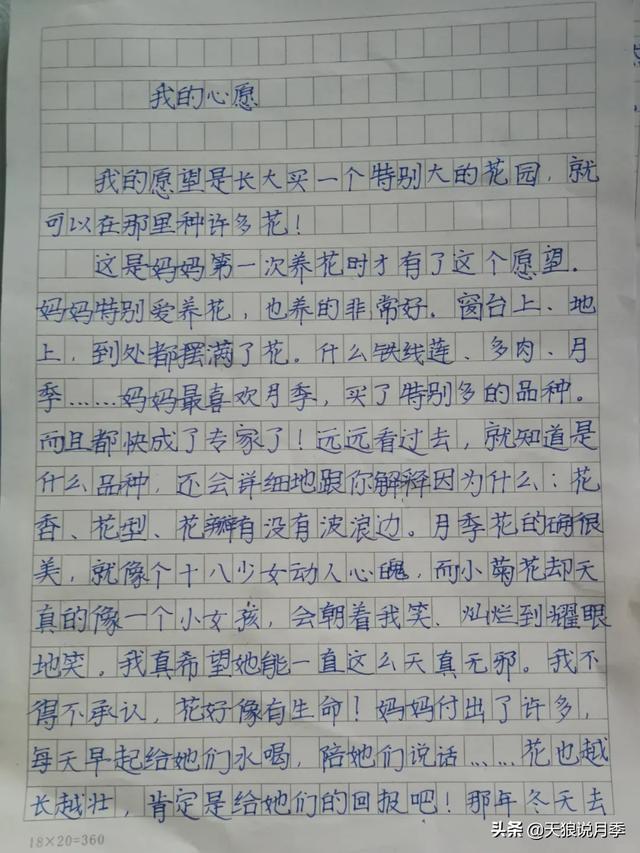 我的心愿
我的愿望是长大买一个特别大的花园，就
可以在那里种许多花！
这是妈妈第一次养花时才有了这个愿望.
妈妈特别爱养花，也养的非常好。窗台上、地
上，到处都摆满了花。什么铁线莲、多肉、月
季……妈妈最喜欢月季，买了特别多的品种。
而且都快成了专家了！远远看过去，就知道是
什么品种，还会详细地跟你解释因为什么：花
香、花型、花瓣有没有波浪边。月季花的确很
美，就像个十八少女动人心魄，而小菊花却天
真的像一个小女孩，会朝着我笑、灿烂到耀眼
地笑。我真希望她能一直这么天真无邪。我不
得不承认，花好像有生命！妈妈付出了许多，
每天早起给她们水喝，陪她们说话……花也越
长越壮，肯定是给她们的回报吧！那年冬天去
18×20=360
头条 @天狼说月季